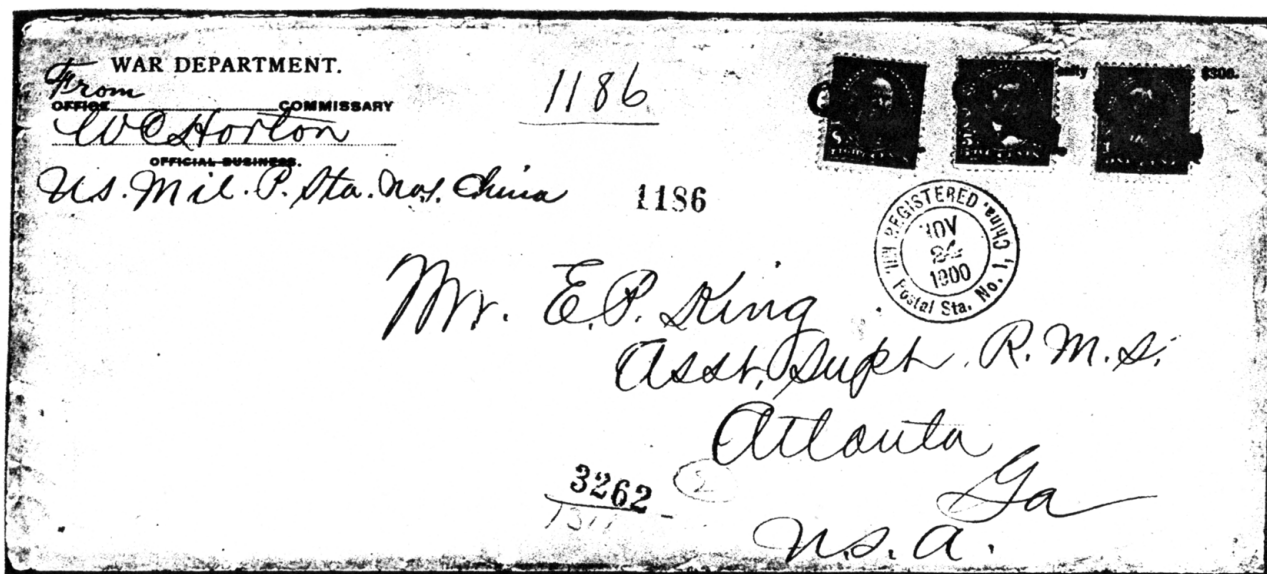 WAR DEPARTMENT.
From
OFFICE COMMISSARY
W C Horton
OFFICIAL BUSINESS.
U.S. Mil. P. Sta. No. 1. China
1186
1186
$300.
REGISTERED
NOV
24
1900
Postal Sta. No. 1, China.
Mr. E. P. King
Asst. Supt. R. M. S.
Atlanta
Ga
U.S.A.
3262
2